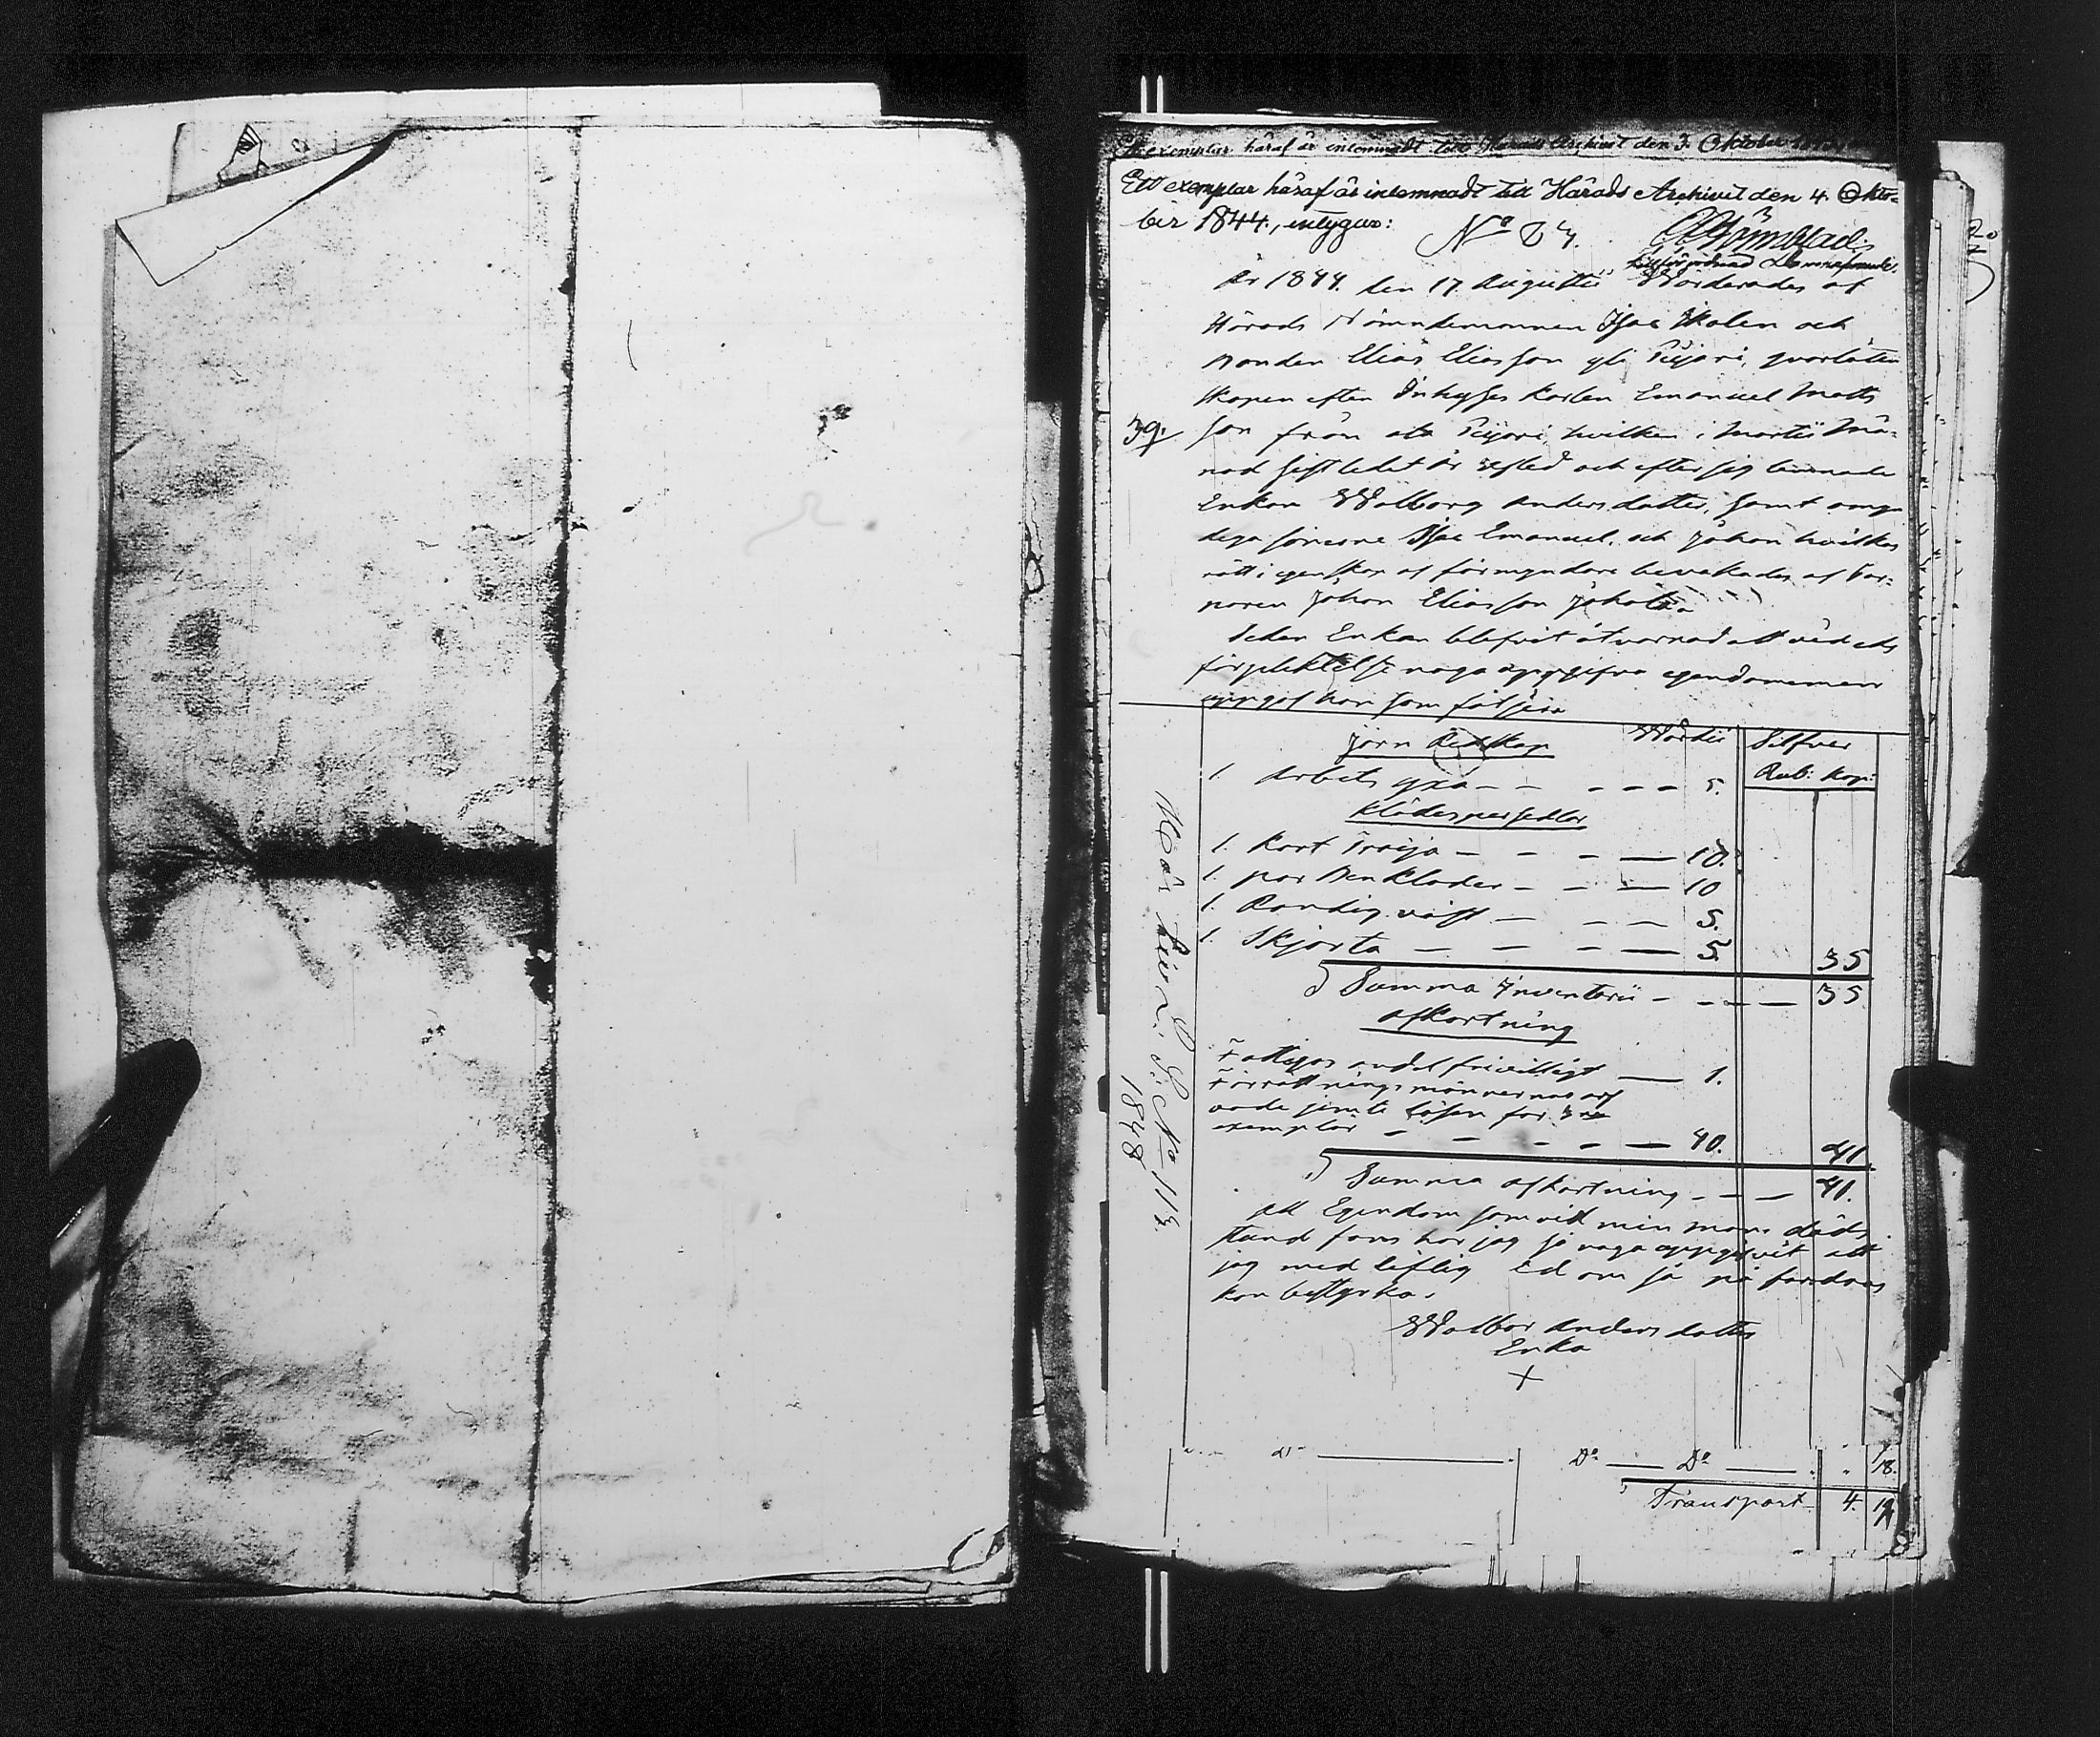 Ett exemplar häraf är inlemnadt till Härads Archivet den 3. Oktober
Ett exemplar häraf är inlemnadt till Härads Archivet den 4. Okto-
ber 1844., intygar:
No
År 1844. den 17. Augustii Wärderades af
Härads Nämndemannen Isac Skolen och
Bonden Elias Eliasson qvarlåten
skapen efter Inhyses Karlen Emanuel Matts
39. son från hvilken i Martii Må-
nad sistledit år afled och efter sig lämnade
Enkan Walborg Anders dotter, samt omyn
diga sönerne Isac Emanuel, och Johan hvilkas
rätt i egenskap af förmyndare bevakades af Tor-
paren Johan Eliasson
Sedan Enkan blefvit åtvarnad att vid eds
förpliktelse noga uppgifva egendomemen
uppgaf hon som följer
Järn Redskap Wärde Silfver
Rub: Kop:
1. Arbets yxa - - - - - 5.
Klädespersedlar
1. Kort Tröija - - - - 10.
1. par Benkläder - - - 10
1. Randig väst - - - 5.
1. Skjorta - - - - 5. 35
Summa Inventarii - - - 35
Afkortning
Fattigas andel frivilligt - 1.
Förrättningsmännernas arf
vode jemte lösen för
exemplar - - - - - 40. 41.
Summa afkortning - - - 41.
att Egendom som vid min mans döds
stund fans har jag så noga uppgifvit att
jag med liflig Ed om så på fordras
kan bestyrka.
Walbor Anders dotter
Enka
+
Do Do 18.
Transport 4. 19
No 113.
1848